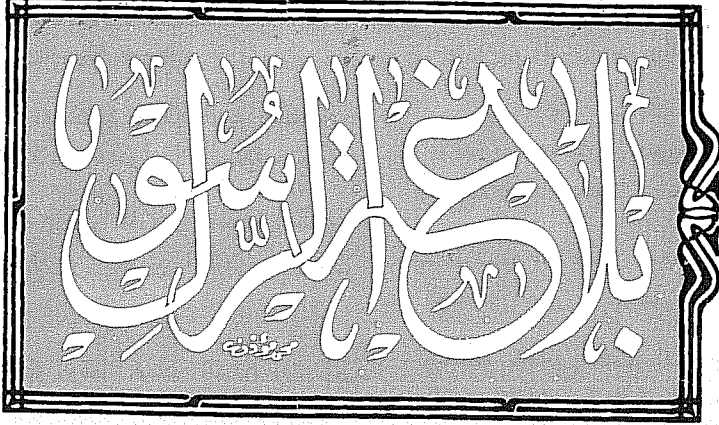 بلاغة الرسول